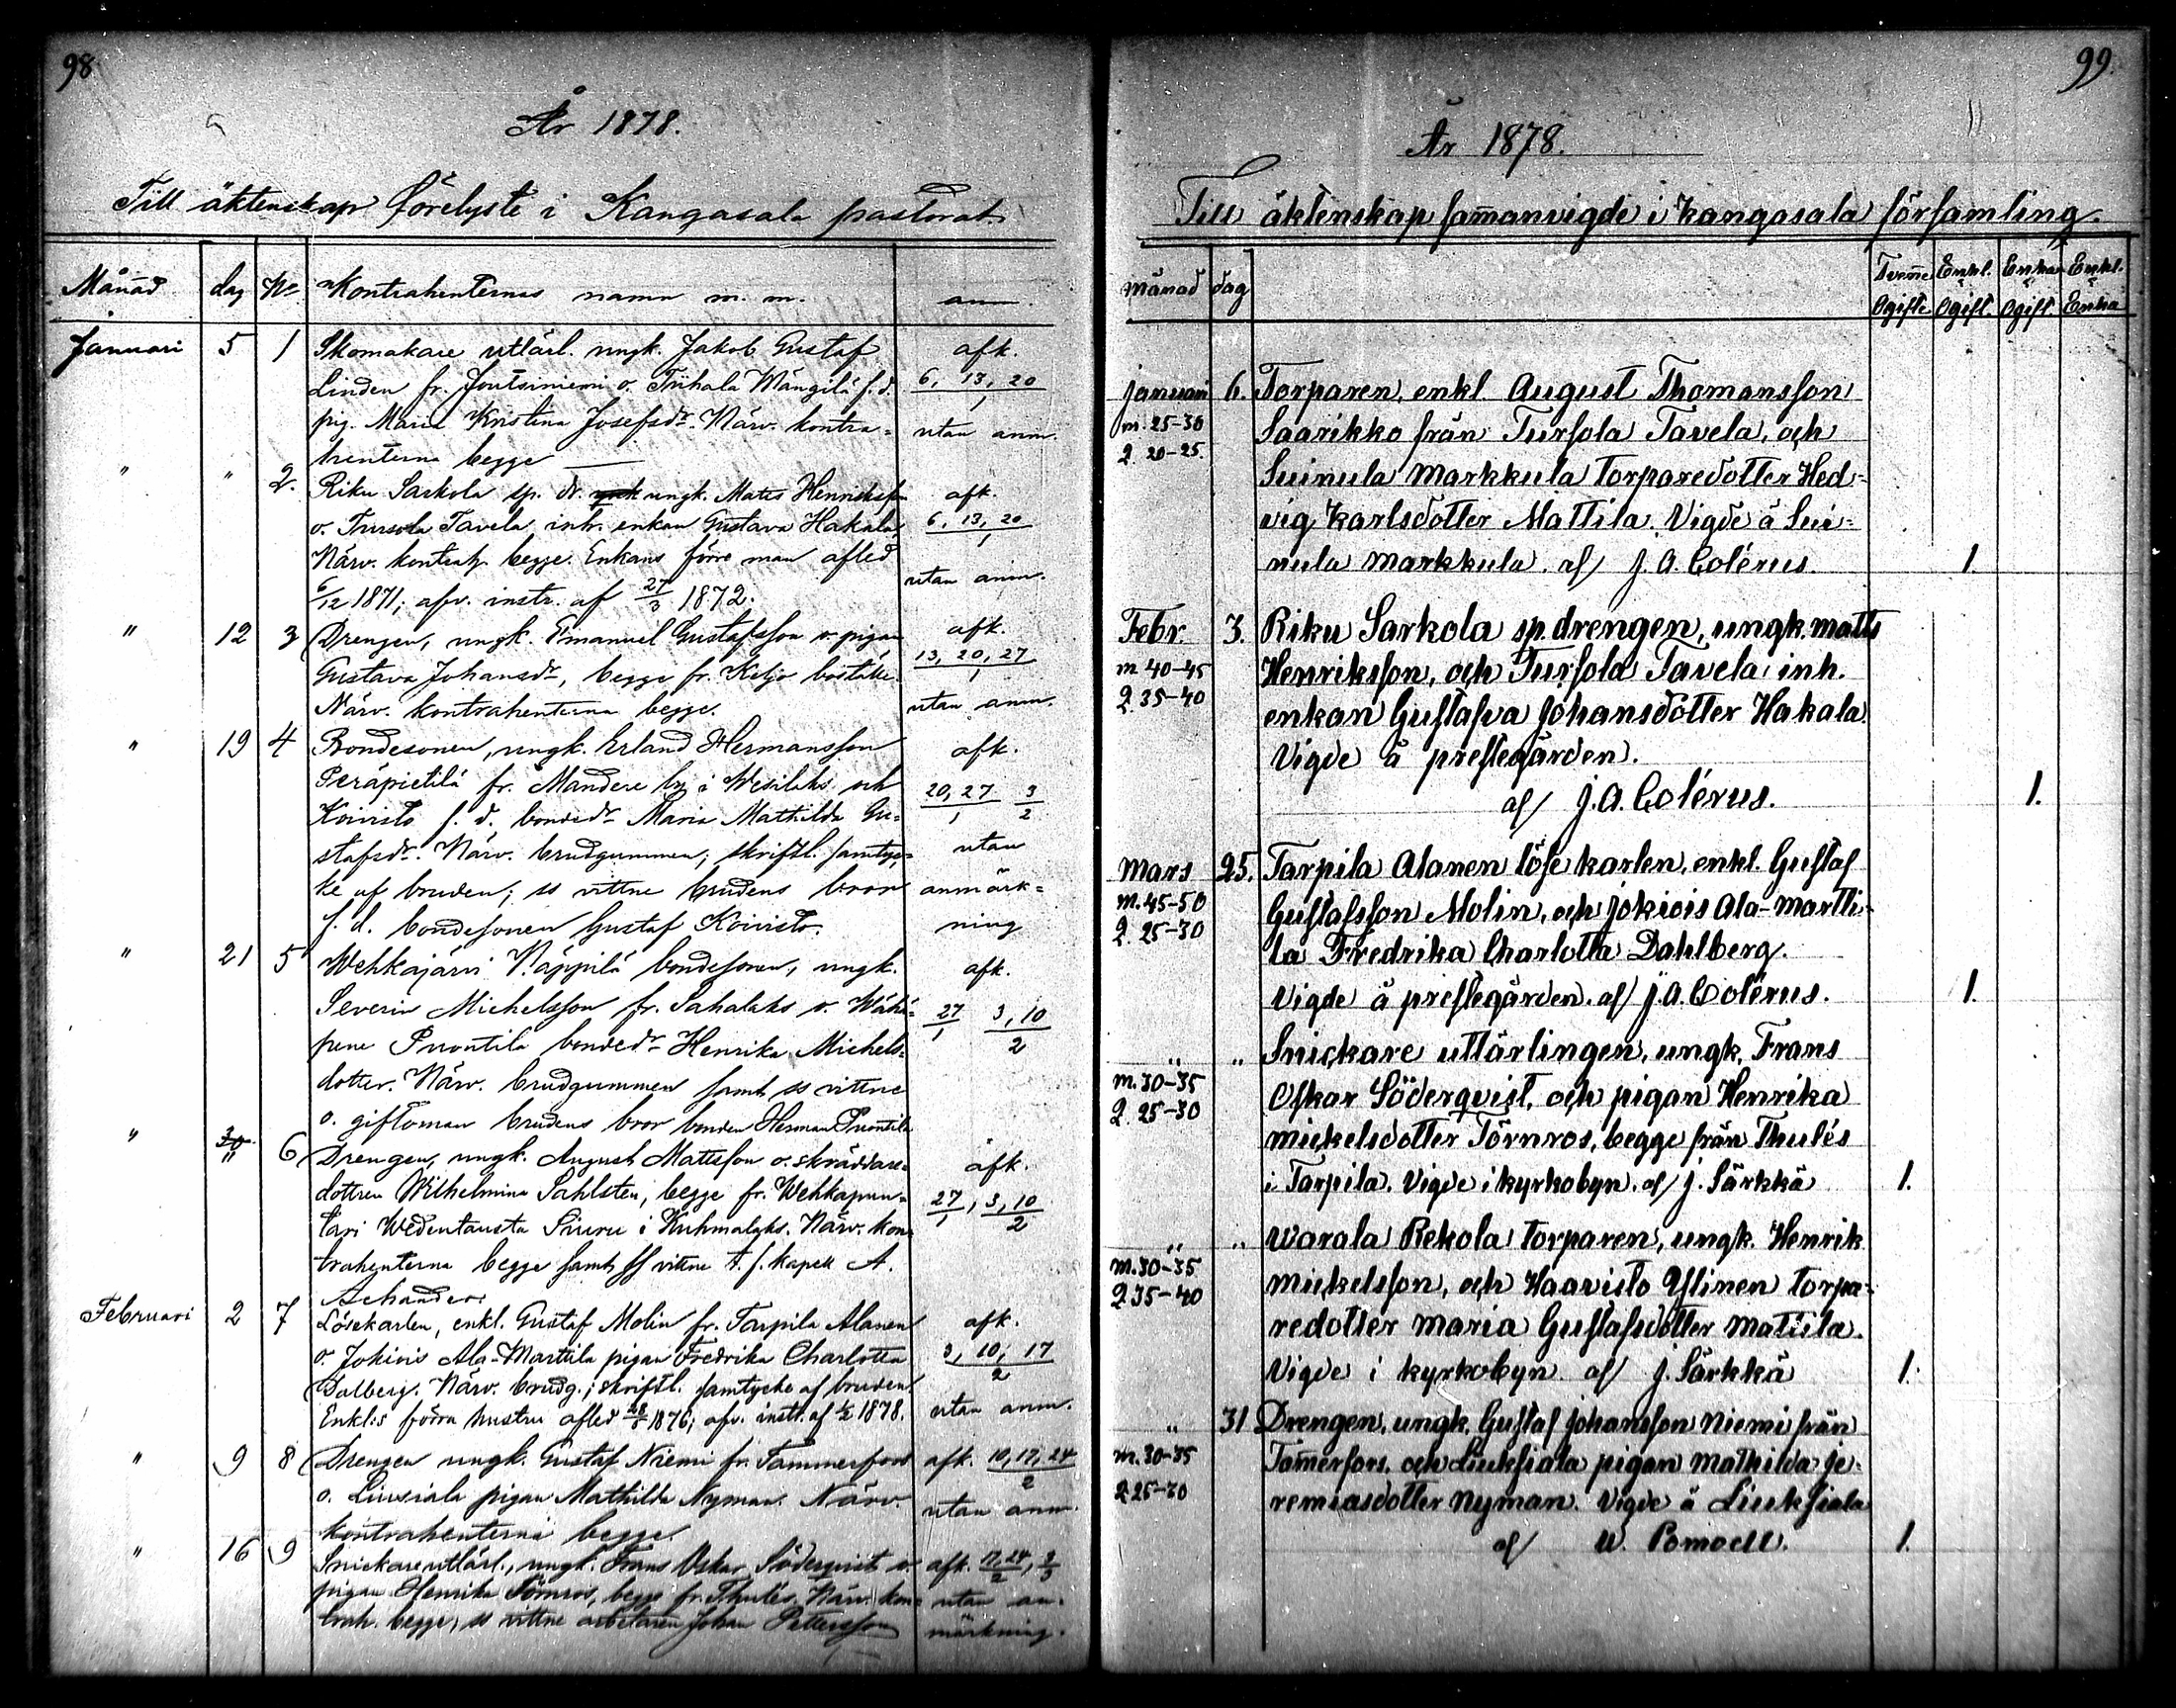 98
År 1878.
Till äktenskap förelyste i Kangasala pastorat
Månad dag No Kontrahenternas namn m. m. anm.
Januari 5 1 Skomakare utlärl. ungk. Jakob Gustaf afk.
Linden fr. Joutsiniemi o. Tiihala Mångilä f. d. 6, 13, 20
pig. Maria Kristina Josefsdr. Närv. kontra= 1
henterna begge utan anm.
" " 2. Riku Sarkola sp. dr. ungk. Mats Henriksson afk.
o. Tursola Tavela inh. enkan Gustava Hakala, 6, 13, 20
Närv. kontrah. begge. Enkans förre man afled 1
6/12 1871; afv. instr. af 27/3 1872. utan anm.
" 12 3 Drengen, ungk. Emanuel Gustafsson o. pigan afk.
Gustava Johansdr, begge fr. Keljo boställe. 13, 20, 27
Närv. kontrahenterna begge. 1 utan anm.
" 19 4 Bondesonen, ungk. Erland Hermansson afk.
Peräpietilä fr. Mandere by i Wesilaks och 20, 27 3
Koivisto f. d. bondedr Maria Mathilda Gu= 1 2
stafsdr. Närv. brudgummen; skriftl. samtyc= utan
ke af bruden; ss vittne brudens bror anmärk=
f. d. bondesonen Gustaf Koivisto. ning
" 21 5 Wehkajärvi Näppilä bondesonen, ungk. afk.
Severin Michelsson fr. Sahalaks o. Wähä= 27 3, 10
pene Puontila bondedr Henrika Michels= 1 2
dotter. Närv. brudgummen samt ss vittne
o. giftoman brudens bror bonden Herman Puontila
" 30 " 6 Drengen, ungk. August Mattsson o. skräddare= afk.
dottren Wilhelmina Sahlsten, begge fr. Wehkapun= 27, 3, 10
tari Wedentausta Siuru i Kuhmalaks. Närv. kon= 1 2
trahenterna begge samt ss vittne t. f. kapell A.
Achander.
Februari 2 7 Lösekarlen, enkl. Gustaf Molin fr. Tarpila Alanen afk.
o. Jokiois Ala-Marttila pigan Fredrika Charlotta 3, 10, 17
Dalberg. Närv. brudg.; skriftl. samtycke af bruden. 2
Enkl:s förra hustru afled 1876; afv. instr. af ½ 1878. utan anm.
" 9 8 Drengen ungk. Gustaf Niemi fr. Tammerfors afk. 10, 17, 24
o. Liuksiala pigan Mathilda Nyman. Närv. 2
kontrahenterna begge. utan anm.
" 16 9 Snickareutlärl., ungk. Frans Oskar Söderqvist o. afk. 17, 24/2, 3/3
pigan Henrika Törnros, begge fr. Thulés. Närv. kon= utan an=
trah. begge; ss vittne arbetaren Johan Pettersson märkning.
99.
År 1878.
Till äktenskap sammanvigde i Kangasala församling.
månad dag Tvenne Ogifte Enkl. o Ogift. Enka o Ogift. Enkl. o Enka
januari 6. Torparen, enkl. August Thomansson
m. 25-30 Saarikko från Tursola Tavela, och
Q. 20-25. Suinula Markkula torparedotter Hed=
vig Karlsdotter Mattila. Vigde å Sui=
nula Markkula. af J. A. Colérus. 1.
Febr. 3. Riku Sarkola sp. drengen, ungk. matts
m 40-45 Henriksson, och Tursola Tavela inh.
Q 35-40 enkan Gustafva Johansdotter Hakala
Vigde å prestegården.
af J. A. Colérus. 1.
Mars 25. Tarpila Alanen löse karlen, enkl. Gustaf
m. 45-50 Gustafsson Molin, och jokiois Ala-martti=
Q. 25-30 la Fredrika Charlotta Dahlberg.
Vigde å prestegården. af J. A. Colérus. 1.
" " Snickare utlärlingen, ungk. Frans
m. 30-35 Oskar Söderqvist, och pigan Henrika
Q. 25-30 mickelsdotter Törnros, begge från Thulés
i Tarpila. Vigde i kyrkobyn. af J. Särkkä 1.
" " Warala Rekola torparen, ungk. Henrik
m. 30-35 mickelsson, och Haavisto Yllinen torpa=
Q 35-40 redotter maria Gustafsdotter Mattila.
Vigde i kyrkobyn af J. Särkkä 1.
" 31 Drengen, ungk. Gustaf Johansson Niemi från
m. 30-35 Tammerfors, och Liuksiala pigan Mathilda Je=
Q 25-30 remiasdotter Nyman. Vigde å Liuksiala
af W. Pomoell. 1.